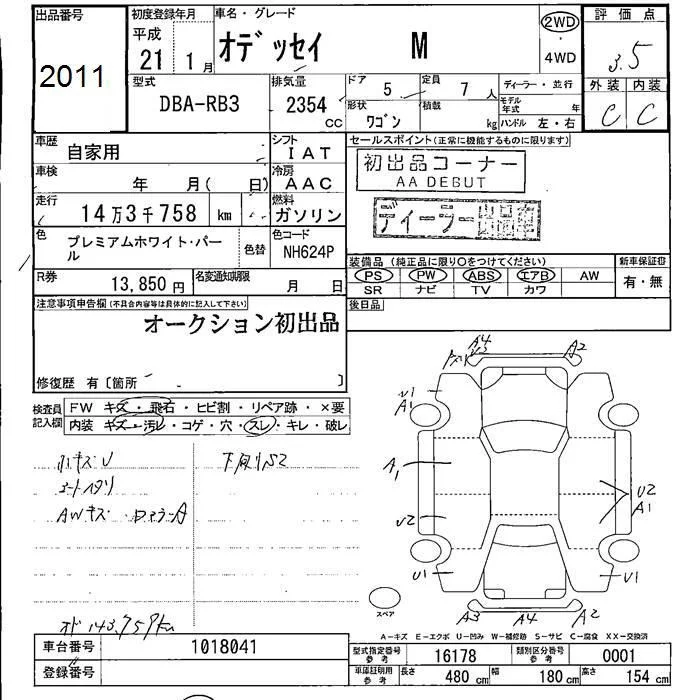 出品番号 初度登録年月 車名・グレード 評価点
2011 平成 21年 1月 オデッセイ M 2WD 4WD 3.5
型式 排気量 ドア 定員 ディーラー・並行 外装 内装
DBA-RB3 2354 CC 5 7人 モデル年式 年 C C
形状 ワゴン 積載 kg ハンドル 左・右
車歴 自家用 シフト IAT セールスポイント(正常に機能するものに限ります)
車検 年 月( 日) 冷房 AAC 初出品コーナー
AA DEBUT
走行 14万3千758 km 燃料 ガソリン ディーラー出品車
色 プレミアムホワイト・パール 色替 色コード NH624P
装備品(純正品に限り○をつけてください) 新車保証書
PS PW ABS エアB AW 有・無
SR ナビ TV カワ
R券 13,850円 名変通知期限 月 日
注意事項申告欄(不具合内容等は具体的に記入して下さい) 後日品
オークション初出品
修復歴 有〔箇所 〕
検査員記入欄 FW キズ・飛石・ヒビ割・リペア跡・×要
内装 キズ・汚レ・コゲ・穴・スレ・キレ・破レ
A4 A2
U1 A1
A1 U2 A1
U2
U1 U1
スペア
A3 A4 A2
ホキズU 下廻りS2
AWキズ
オド143,759km
A-キズ E-エクボ U-凹み W-補修跡 S-サビ C-腐食 XX-交換済
車台番号 1018041 型式指定番号 参考 16178 類別区分番号 参考 0001
登録番号 車庫証明用 参考 長さ 480 cm 幅 180 cm 高さ 154 cm